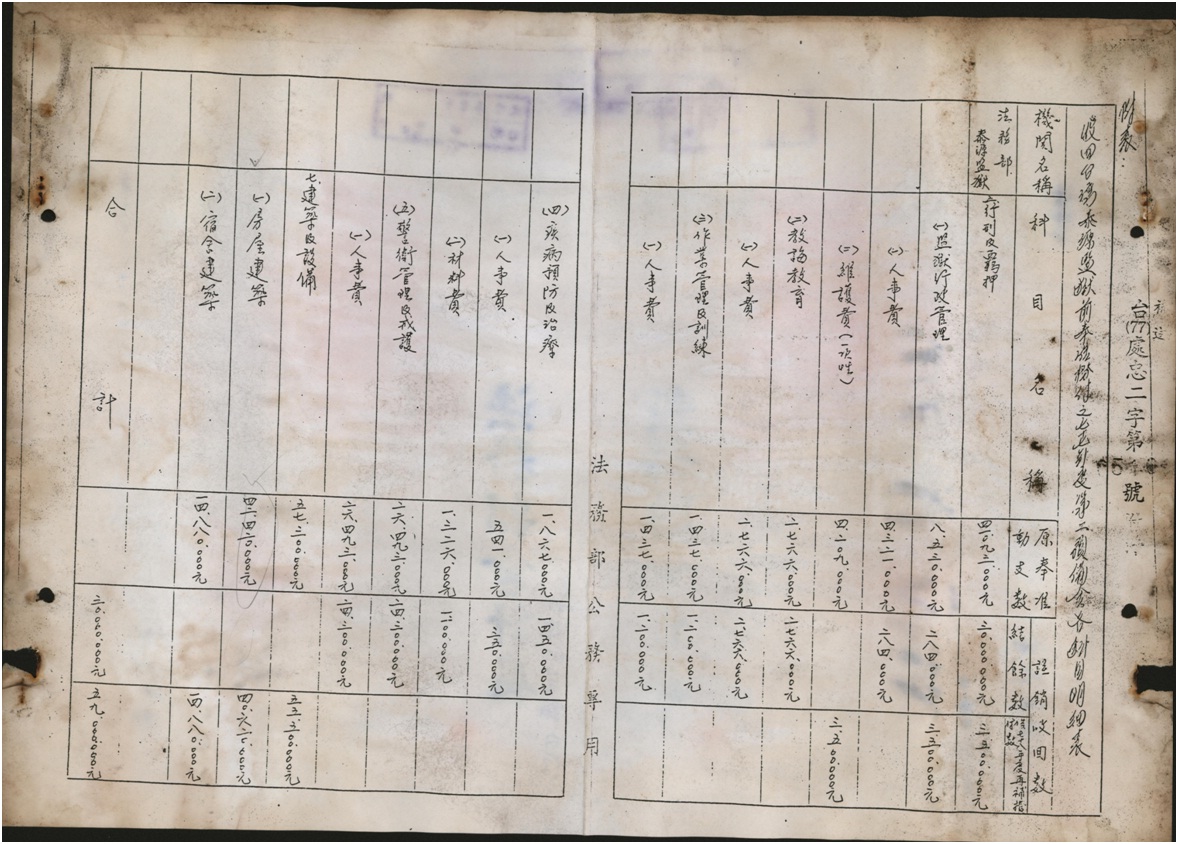 附表：
收回台灣泰源監獄前奉准撥給之七七年度第二預備金各科目明細表
台(77)處忠二字第 號
機關名稱
科目名稱
原奉准動支數
註銷收回數
結餘數
法務部
泰源監獄
行刑及羈押
四〇、九二〇、〇〇〇元
(一)監獄行政管理
八、五三〇、〇〇〇元
二八四、〇〇〇元
(一)人事費
四、三二一、〇〇〇元
二八四、〇〇〇元
(二)維護費(一次性)
四、二〇九、〇〇〇元
三、五〇〇、〇〇〇元
(二)教誨教育
二、七六六、〇〇〇元
二、七六六、〇〇〇元
(一)人事費
二、七六六、〇〇〇元
二、七六六、〇〇〇元
(三)作業管理及訓練
一、四三七、〇〇〇元
一、二〇〇、〇〇〇元
(一)人事費
一、四三七、〇〇〇元
一、二〇〇、〇〇〇元
法務部公務專用
(四)疾病預防及治療
一、八六七、〇〇〇元
一、四五〇、〇〇〇元
(一)人事費
五四一、〇〇〇元
二五〇、〇〇〇元
(二)材料費
一、三二六、〇〇〇元
一、二〇〇、〇〇〇元
(五)警衛管理及戒護
二六、四九二、〇〇〇元
二四、三〇〇、〇〇〇元
(一)人事費
二六、四九二、〇〇〇元
二四、三〇〇、〇〇〇元
七、建築及設備
五七、三〇〇、〇〇〇元
五五、五〇〇、〇〇〇元
(一)房屋建築
四二、四二〇、〇〇〇元
四〇、六二〇、〇〇〇元
(二)宿舍建築
一四、八八〇、〇〇〇元
一四、八八〇、〇〇〇元
合計
三〇、〇〇〇、〇〇〇元
五九、〇〇〇、〇〇〇元